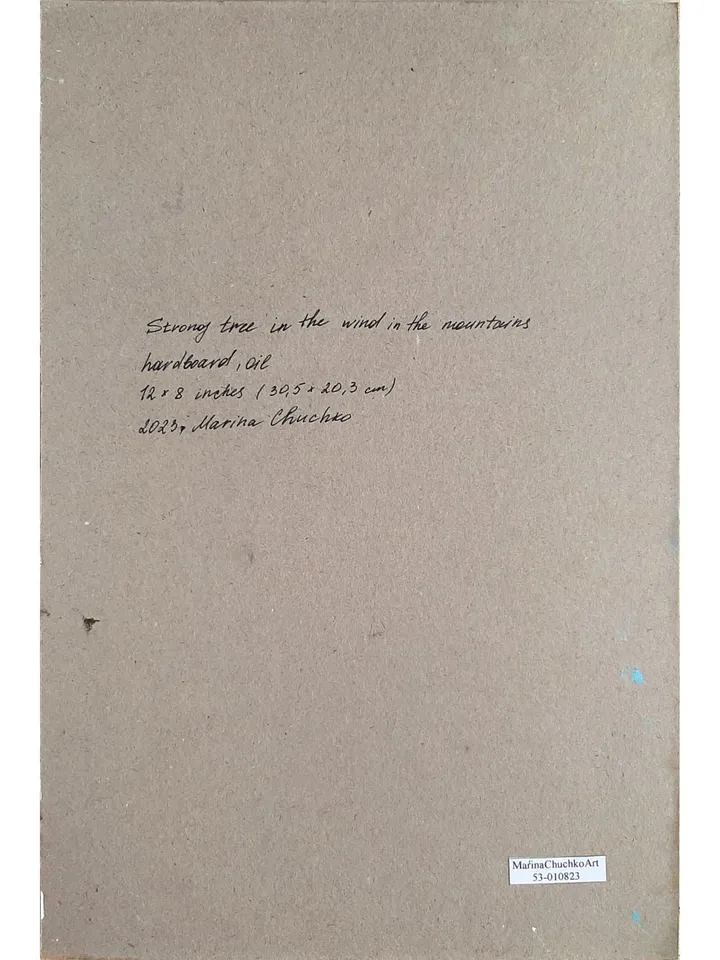 Strong tree in the wind in the mountains
hardboard, oil
12 x 8 inches (30,5 x 20,3 cm)
2023, Marina Chuchko
MarinaChuchkoArt
53-010823